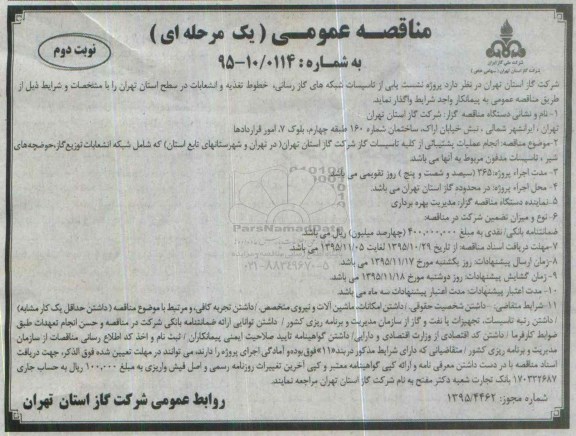 مناقصه عمومی ( یک مرحله ای )
به شماره : ۹۵-۱۰/۰۱۱۴
نوبت دوم
شرکت ملی گاز ایران
شرکت گاز استان تهران (سهامی خاص)
شرکت گاز استان تهران در نظر دارد، پروژه نشست یابی از تاسیسات شبکه های گاز رسانی، خطوط تغذیه و انشعابات در سطح استان تهران را با مشخصات و شرایط ذیل از
طریق مناقصه عمومی به پیمانکار واجد شرایط واگذار نماید.
۱- نام و نشانی دستگاه مناقصه گزار: شرکت گاز استان تهران
تهران ، ایرانشهر شمالی ، نبش خیابان اراک، ساختمان شماره ۱۶۰ طبقه چهارم، بلوک ۷، امور قراردادها
۲- موضوع مناقصه: انجام عملیات پشتیبانی از کلیه تاسیسات گاز شرکت گاز استان تهران( در تهران و شهرستانهای تابع استان) که شامل شبکه انشعابات توزیع گاز، حوضچه‌های
شیر ، تاسیسات مدفون مربوط به آنها می باشد.
۳- مدت اجراء پروژه: ۳۶۵ (سیصد و شصت و پنج ) روز تقویمی می باشد.
۴- محل اجراء پروژه: در محدوده گاز استان تهران می باشد.
۵- نماینده دستگاه مناقصه گزار: مدیریت بهره برداری
۶- نوع و میزان تضمین شرکت در مناقصه:
ضمانتنامه بانکی/ نقدی به مبلغ ۴۰۰,۰۰۰,۰۰۰ (چهارصد میلیون) ریال می باشد.
۷- مهلت دریافت اسناد مناقصه از تاریخ ۱۳۹۵/۱۰/۲۹ لغایت ۱۳۹۵/۱۱/۰۵ می باشد.
۸- زمان ارسال پیشنهادات: روز یکشنبه مورخ ۱۳۹۵/۱۱/۱۷ می باشد.
۹- زمان گشایش پیشنهادات: روز دوشنبه مورخ ۱۳۹۵/۱۱/۱۸ می باشد.
۱۰- مدت اعتبار پیشنهادات: مدت اعتبار پیشنهادات سه ماه می باشد.
۱۱- شرایط متقاضی: - داشتن شخصیت حقوقی /داشتن امکانات، ماشین آلات و نیروی متخصص /داشتن تجربه کافی، و مرتبط با موضوع مناقصه ( داشتن حداقل یک کار مشابه)
/ داشتن رتبه تاسیسات، تجهیزات یا نفت و گاز از سازمان مدیریت و برنامه ریزی کشور / داشتن توانایی ارائه ضمانتنامه بانکی شرکت در مناقصه و حسن انجام تعهدات طبق
ضوابط کارفرما / داشتن کد اقتصادی از وزارت اقتصادی و دارایی/ داشتن گواهینامه تایید صلاحیت ایمنی پیمانکاران / ثبت نام و اخذ کد اطلاع رسانی مناقصات از سازمان
مدیریت و برنامه ریزی کشور / متقاضیانی که دارای شرایط مذکور در بند«۱۱» فوق بوده و آمادگی اجرای پروژه را دارند، می توانند در مهلت تعیین شده فوق الذکر، جهت دریافت
اسناد مناقصه با در دست داشتن معرفی نامه و ارائه کپی گواهینامه معتبر و کپی آخرین تغییرات روزنامه رسمی و اصل فیش واریزی به مبلغ ۱۰۰,۰۰۰ ریال به حساب جاری
۱۷۰۳۳۲۶۸۷ بانک تجارت شعبه دکتر مفتح به نام شرکت گاز استان تهران مراجعه نمایند.
شماره مجوز: ۱۳۹۵/۴۴۶۲
روابط عمومی شرکت گاز استان تهران
ParsNamadData
۰۲۱-۸۸۳۴۹۶۷۰-۵